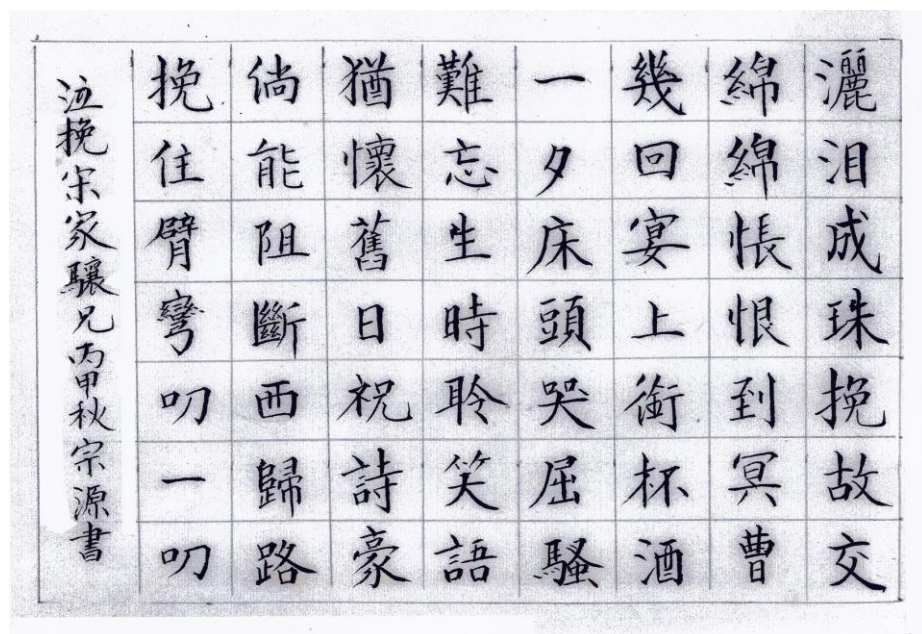 灑泪成珠挽故交
綿綿悵恨到冥曹
幾回宴上銜杯酒
一夕床頭哭屈騷
難忘生時聆笑語
猶懷舊日祝詩豪
倘能阻斷西歸路
挽住臂彎叨一叨
泣挽宋家驤兄丙申秋宗源書